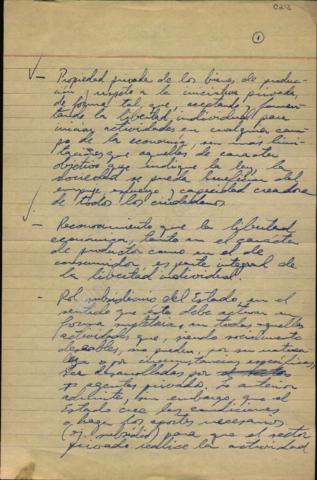 0212
1
— Propiedad privada de los bienes de produc-
ción y respeto a la iniciativa privada,
de forma tal que, aceptando y fomen-
tando la libertad individual para
iniciar actividades en cualquier cam-
po de la economía, sin más limi-
taciones que aquellas de carácter
objetivo que indique la ley, la
sociedad se pueda beneficiar del
empuje, esfuerzo y capacidad creadora
de todos los ciudadanos
— Reconocimiento que la libertad
económica, tanto en el carácter
de productor como en el de
consumidor, es parte integral de
la libertad individual.
— Rol subsidiario del Estado, en el
sentido que éste debe actuar en
forma supletoria, en todas aquellas
actividades que, siendo socialmente
deseables, no puedan, por su naturaleza
o por circunstancias específicas,
ser desarrolladas por
agentes privados. Lo anterior
admite, sin embargo, que el
Estado cree las condiciones
o haga los aportes necesarios
(ej. subsidio) para que el sector
privado realice la actividad